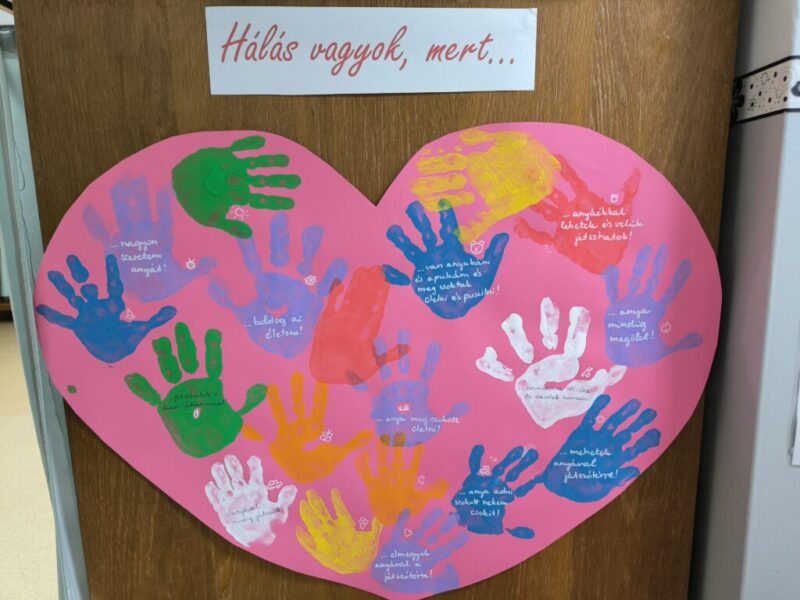 Hálás vagyok, mert...
...nagyon
szeretem
anyát!
...boldog az
életem!
...van anyukám
és apukám és
meg szoktak
ölelni és puszilni!
lehetek és velük
játszhatok!
...anya
mindig
megölel!
...anya meg szokott
ölelni!
...mehetek
anyával
játszótérre!
...anya adni
szokott nekem
csokit!
...elmegyek
anyával a
játszótérre!